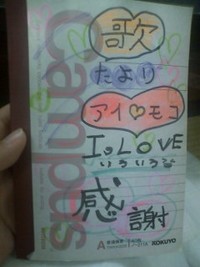 Campus
歌
たより
アイ♡モコ
I。LOVE
いろいろ
感
謝
A
KOKUYO